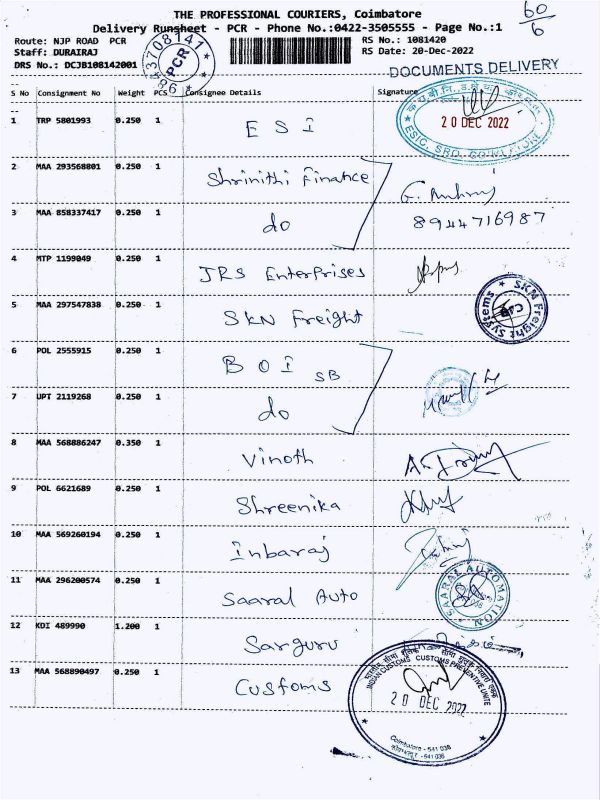 THE PROFESSIONAL COURIERS, Coimbatore
Delivery Runsheet - PCR - Phone No.:0422-3505555 - Page No.:1
60/6
Route: NJP ROAD PCR
Staff: DURAIRAJ
DRS No.: DCJB108142001
PCR
RS No.: 1081420
RS Date: 20-Dec-2022
DOCUMENTS DELIVERY
S No Consignment No Weight PCS Consignee Details Signature
1 TRP 5801993 0.250 1 ESI
20 DEC 2022
ESIC, SRO, COIMBATORE
2 MAA 293568801 0.250 1 Shrinithi Finance
3 MAA 858337417 0.250 1 do 8944716987
4 MTP 1199049 0.250 1 JRS Enterprises
5 MAA 297547838 0.250 1 SKN Freight
SKN Freight Systems
CJB
6 POL 2555915 0.250 1 BOI SB
7 UPT 2119268 0.250 1 do
8 MAA 568886247 0.350 1 Vinoth
9 POL 6621689 0.250 1 Shreenika
10 MAA 569260194 0.250 1 Inbaraj
11 MAA 296200574 0.250 1 Saaral Auto
SAARAL AUTOMATION
12 KDI 489990 1.200 1 Sarguru
13 MAA 568890497 0.250 1 Customs
INDIAN CUSTOMS CUSTOMS PREVENTIVE UNIT
20 DEC 2022
Coimbatore - 541 038